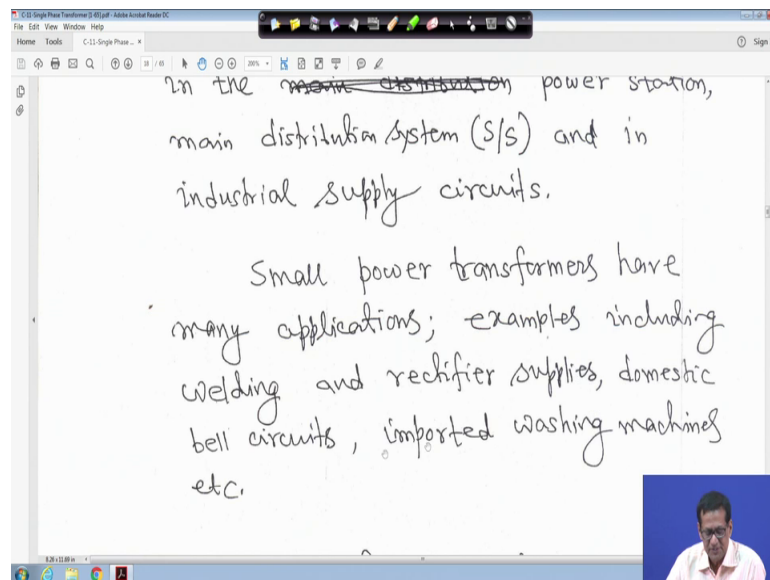 C-11-Single Phase Transformer [1-65].pdf - Adobe Acrobat Reader DC
File Edit View Window Help
Home Tools C-11-Single Phase ... × Sign
18 / 65 200%
in the main distribution power station,
main distribution system (S/S) and in
industrial supply circuits.
Small power transformers have
many applications; examples including
welding and rectifier supplies, domestic
bell circuits, imported washing machines
etc.
8.26 x 11.69 in